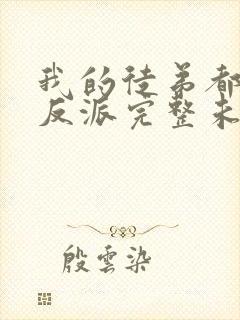 我的徒弟都
反派完整未
殷雲染